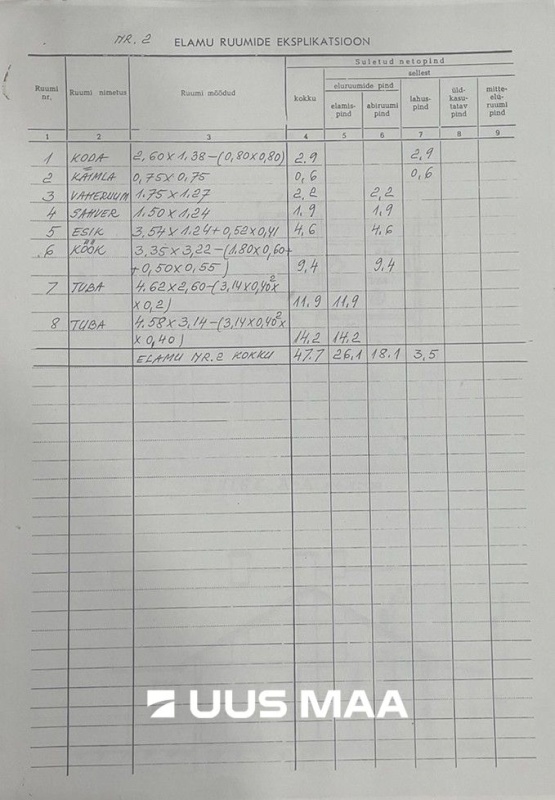 NR. 2 ELAMU RUUMIDE EKSPLIKATSIOON
Suletud netopind
sellest
Ruumi nr. Ruumi nimetus Ruumi mõõdud kokku eluruumide pind lahus-pind üld-kasu-tatav pind mitte-elu-ruumi pind
elamis-pind abiruumi pind
1 2 3 4 5 6 7 8 9
1 KODA 2,60 x 1,38 – (0,80 x 0,80) 2.9 2,9
2 KÄIMLA 0,75 x 0,75 0,6 0,6
3 VAHERUUM 1.75 x 1.27 2,2 2,2
4 SAHVER 1.50 x 1,24 1.9 1.9
5 ESIK 3,54 x 1.24 + 0,52 x 0,41 4,6 4.6
6 KÖÖK 3,35 x 3,22 – (1.80 x 0,60 +
+ 0,50 x 0,55) 9,4 9.4
7 TUBA 4.62 x 2,60 – (3,14 x 0,40² x
x 0,2) 11.9 11,9
8 TUBA 4.58 x 3,14 – (3,14 x 0,40² x
x 0,40) 14.2 14.2
ELAMU NR. 2 KOKKU 47.7 26,1 18.1 3,5
UUS MAA